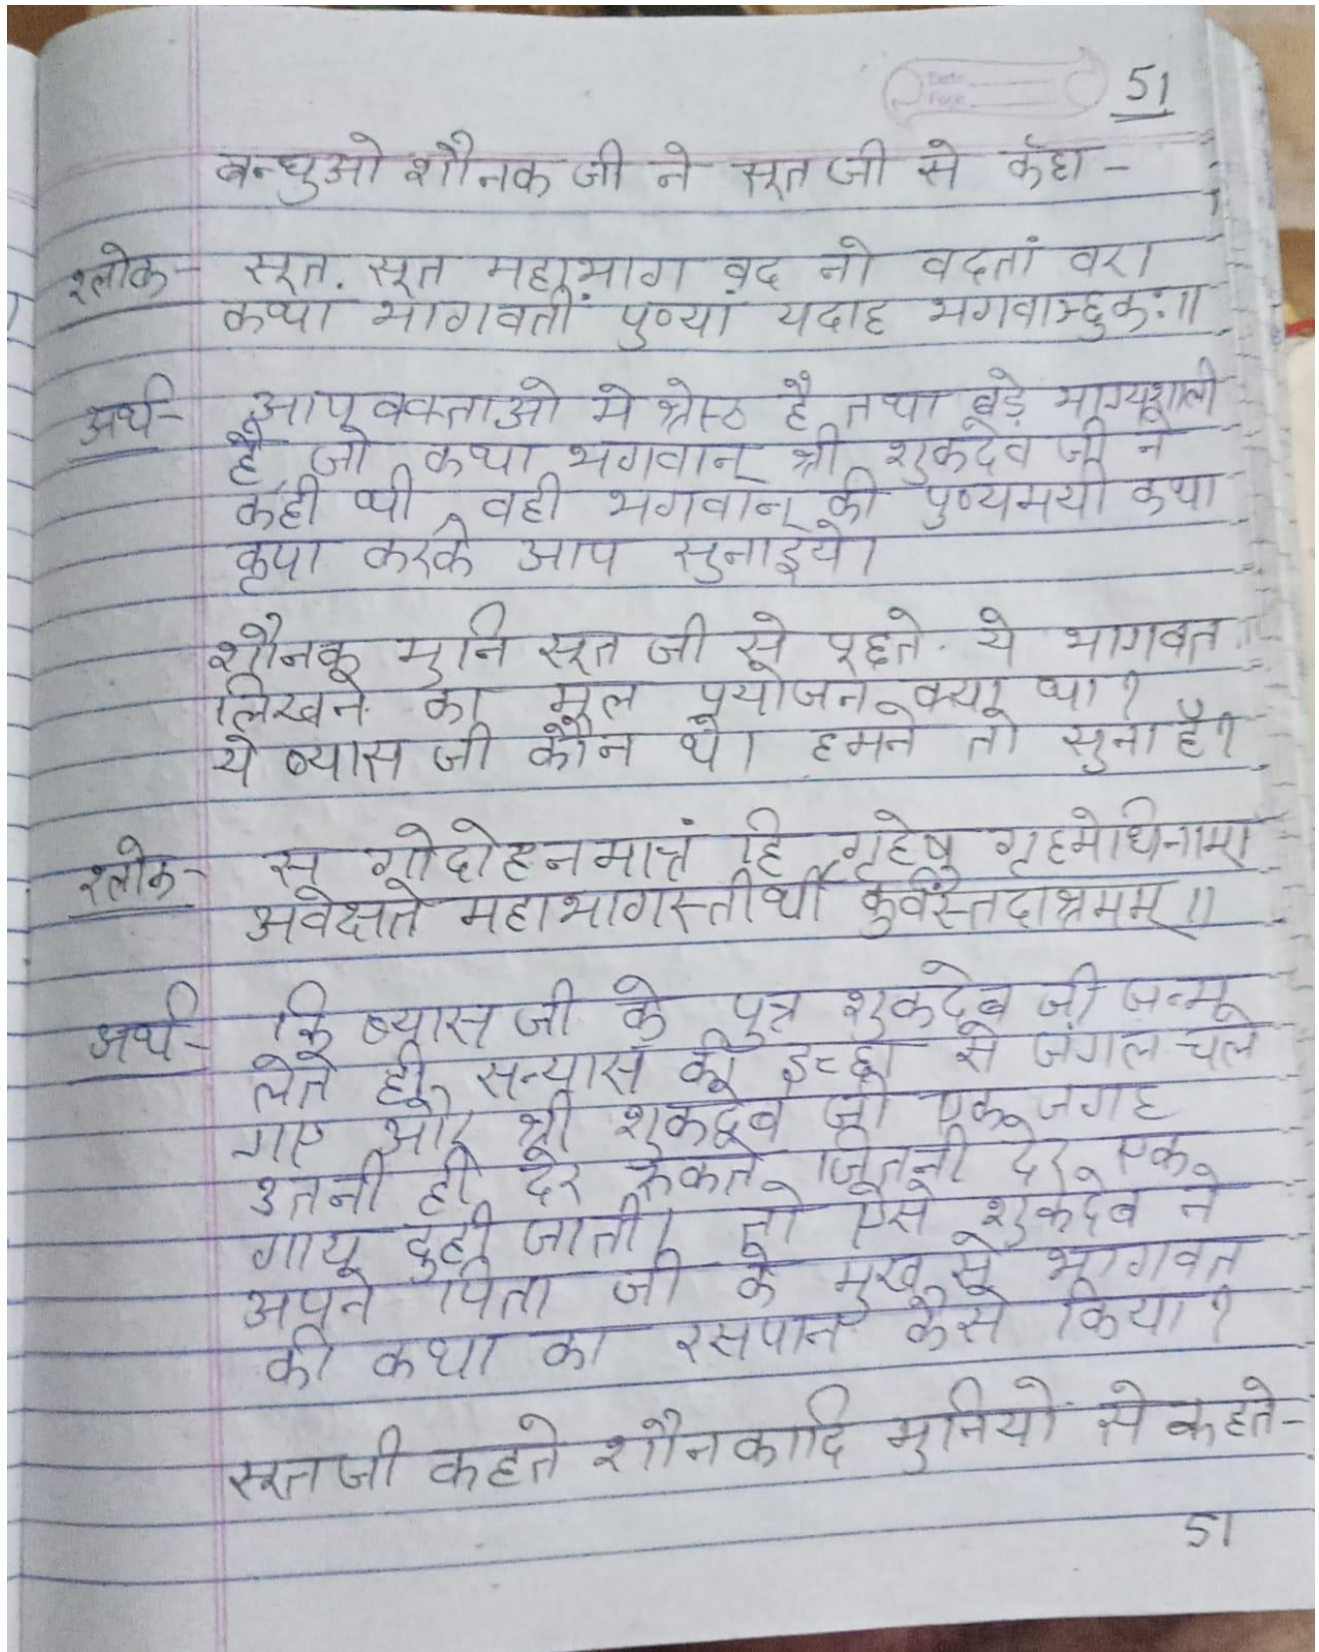 Date
Page
51
बन्धुओ शौनक जी ने सूत जी से कहा -
श्लोक - सूत. सूत महाभाग वद नो वदतां वर।
कथा भागवतीं पुण्यां यदाह भगवाञ्छुकः॥
अर्थ - आप वक्ताओ मे श्रेस्ठ है तथा बड़े भाग्यशाली
है, जो कथा भगवान् श्री शुकदेव जी ने
कही थी वही भगवान् की पुण्यमयी कथा
कृपा करके आप सुनाइये।
शौनक मुनि सूत जी से पूछते ये भागवत
लिखने का मूल प्रयोजन क्या था?
ये ब्यास जी कौन थे। हमने तो सुना है?
श्लोक - स गोदोहनमात्रं हि गृहेषु गृहमेधिनाम्।
अवेक्षते महाभागस्तीर्थी कुर्वंस्तदाश्रमम्॥
अर्थ - कि ब्यास जी के पुत्र शुकदेव जी जन्म
लेते ही सन्यास की इच्छा से जंगल चले
गए और श्री शुकदेव जी एक जगह
उतनी ही देर रुकते जितनी देर एक
गाय दुही जाती। तो ऐसे शुकदेव ने
अपने पिता जी के मुख से भागवत
की कथा का रसपान कैसे किया?
सूतजी कहते शौनकादि मुनियो से कहते -
51